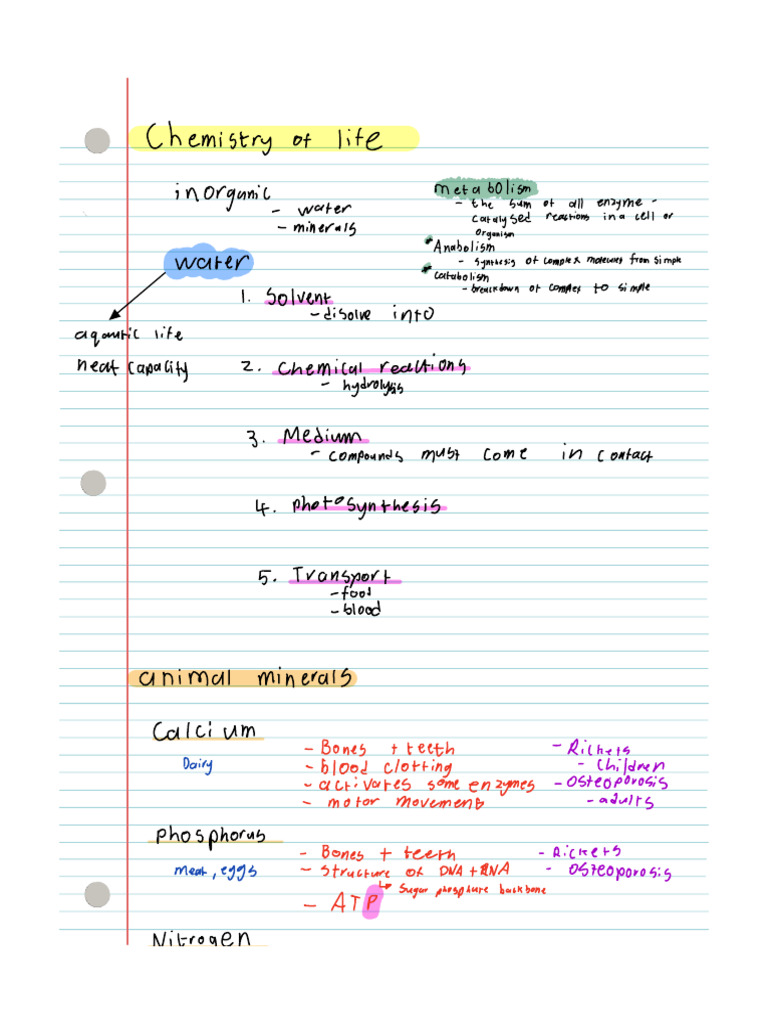 Chemistry of life
inorganic
- water
- minerals
metabolism
- the sum of all enzyme -
catalysed reactions in a cell or
organism
* Anabolism
- synthesis of complex molecules from simple
* catabolism
- breakdown of complex to simple
water
aquatic life
heat capacity
1. Solvent
- disolve into
2. Chemical reactions
- hydrolysis
3. Medium
- compounds must come in contact
4. photosynthesis
5. Transport
- food
- blood
animal minerals
Calcium
Dairy
- Bones + teeth
- blood clotting
- activates some enzymes
- motor movement
- Rickets
- children
- osteoporosis
- adults
phosphorus
meat, eggs
- Bones + teeth
- structure of DNA + RNA
↳ sugar phosphate backbone
- ATP
- Rickets
- osteoporosis
Nitrogen